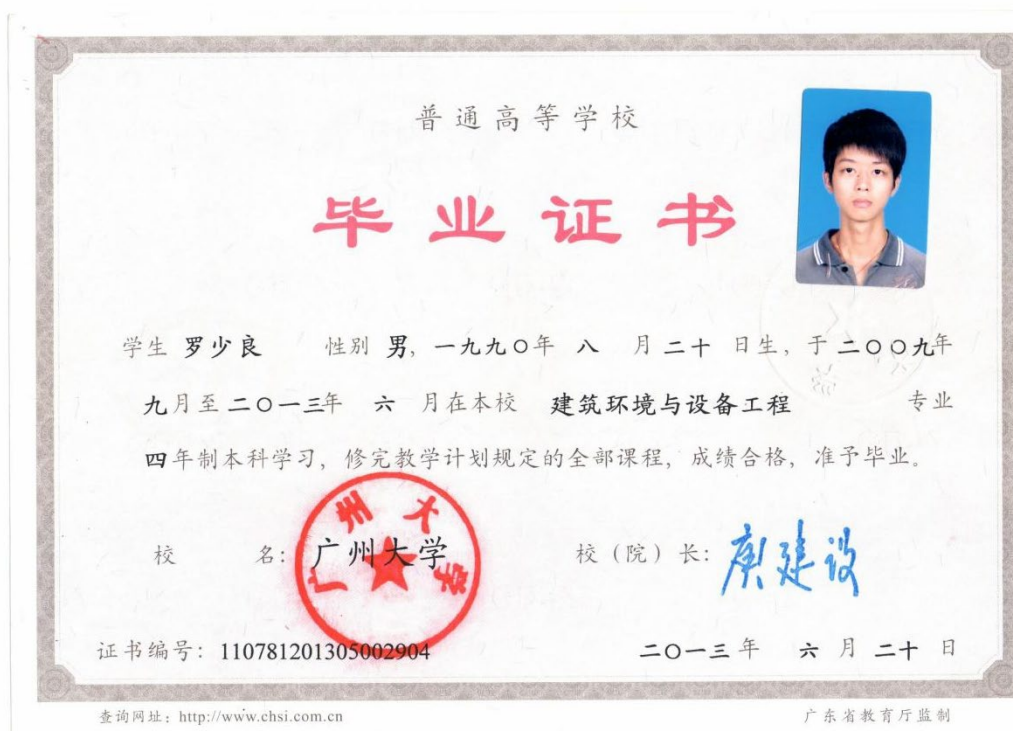 普通高等学校
毕业证书
学生 罗少良 性别 男，一九九〇年 八 月 二十 日生，于 二〇〇九年
九月至 二〇一三年 六 月在本校 建筑环境与设备工程 专业
四年制本科学习，修完教学计划规定的全部课程，成绩合格，准予毕业。
广州大学
校 名：广州大学 校（院）长：庾建设
证书编号：110781201305002904 二〇一三年 六 月 二十 日
查询网址：http://www.chsi.com.cn 广东省教育厅监制